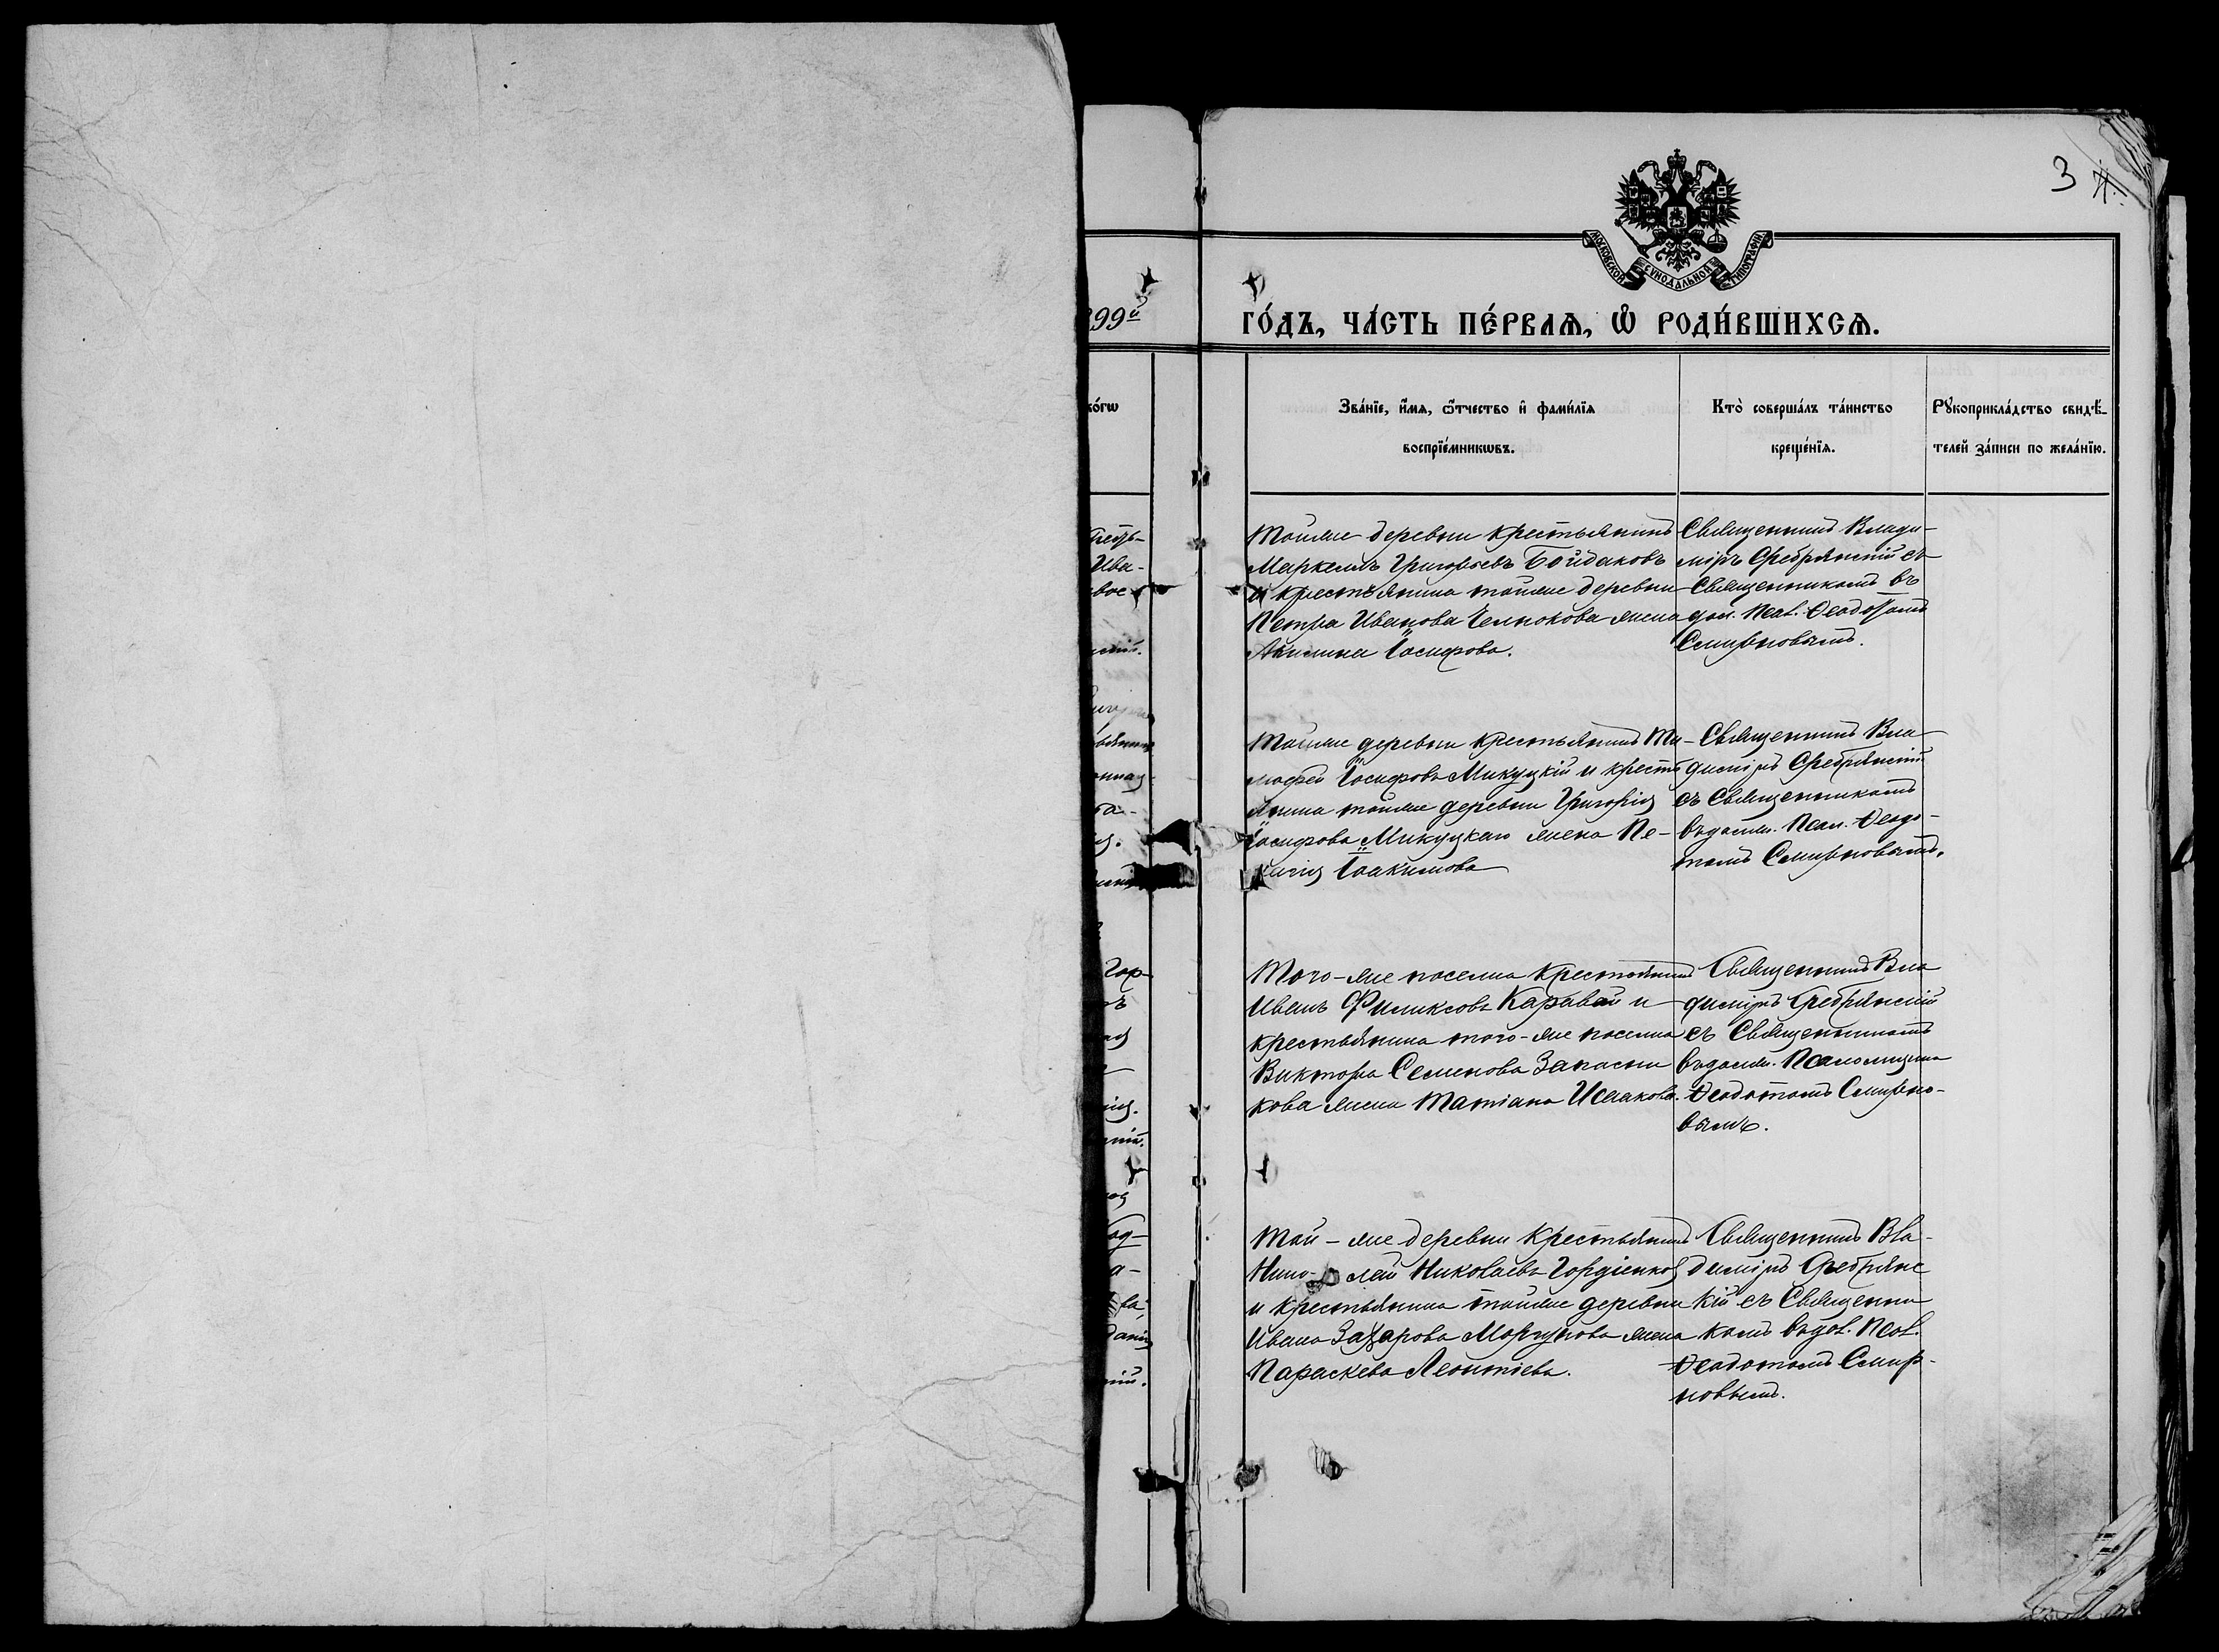 3
МОСКОВСКОЙ СѴНОДАЛЬНОЙ ТИПОГРАФІИ
99й
го́дъ, ча́сть пе́рваѧ, ѡ҆ роди́вшихсѧ.
Зва́нїе, и҆́мѧ, ѻ҆́тчество и҆ фами́лїѧ
воспрїе́мникѡвъ.
Кто̀ соверша́лъ та́инство
креще́нїѧ.
Рꙋкоприкла́дство свидѣ́-
телей за́писи по жела́нїю.
Тойже деревни крестьянинъ
Маркеллъ Григорьевъ Бойдаковъ
и крестьянина тойже деревни
Петра Иванова Челнокова жена
Акилина Іосифова.
Священникъ Влади-
міръ Сребрянскій съ
Священникомъ въ
дол. Псал. Ѳеодотомъ
Смирновымъ.
Тойже деревни крестьянинъ Ти-
мофей Іосифовъ Микуцкій и кресть
янина тойже деревни Григорія
Іосифова Микуцкаго жена Пе-
лагія Іоакимова
Священникъ Вла
диміръ Сребрянскій
съ Священникомъ
въ должн. Псал. Ѳеодо-
томъ Смирновымъ.
Того-же поселка крестьянинъ
Иванъ Филиксовъ Каравай и
крестьянина того-же поселка
Виктора Семенова Запасни
кова жена Татіана Исаакова.
Священникъ Вла
диміръ Сребрянскій
съ Священникомъ
въ должн. Псаломщика
Ѳеодотомъ Смирно-
вымъ.
Той-же деревни крестьянинъ
Нико- лай Николаевъ Гордіенко
и крестьянина тойже деревни
Ивана Захарова Моргунова жена
Параскева Леонтіева.
Священникъ Вла-
диміръ Сребрянс
кій съ Священни
комъ въ дол. Псал.
Ѳеодотомъ Смир-
новымъ.